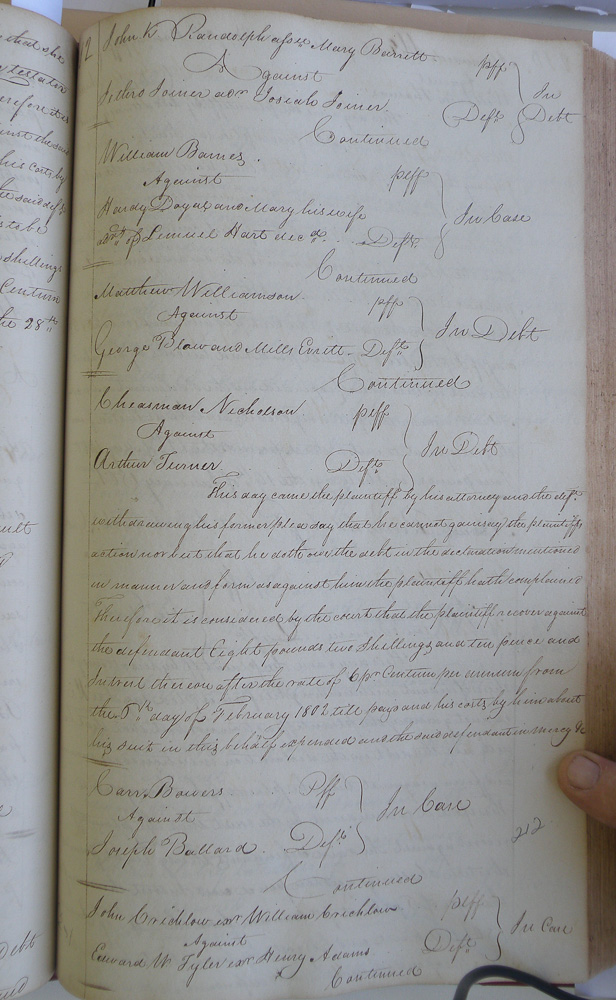 2 John K Randolph assee Mary Barrett. plff
Against In
Jethro Joiner adm Josiah Joiner. Deft Debt
Continued
William Barnes. plff
Against
Hardy Doyal and Mary his wife In Case
of Lemuel Hart decd. . . Defts.
Continued
Matthew Williamson. plff
Against In Debt
George Blow and Mills Everitt. Defts
Continued
Cheasman Nicholson. plff
Against In Debt
Arthur Turner. Deft
This day came the plaintiff by his attorney and the deft.
withdrawing his former plea say that he cannot gainsay the plaintiffs
action nor but that he doth owe the debt in the declaration mentioned
in manner and form as against him the plaintiff hath complained
Therefore it is considered by the court that the plaintiff recover against
the defendant Eight pounds two Shillings and ten pence and
Intrest thereon after the rate of 6 pr Centum per annum from
the day of February 1802 till paid and his costs by him about
his suit in this behalf expended and the said defendant in mercy &c
Carr Bowers. . . Plff
Against In Case
Joseph Ballard. Deft
212
Continued
John Crichlow exr William Crichlow plff
Against In Case
Edward W Tyler exr Henry Adams Deft
Continued
that she
testator
erefore it is
inst the said
his costs by
the said deft
is to be
shillings
Centum
the 28th
ult
Debt